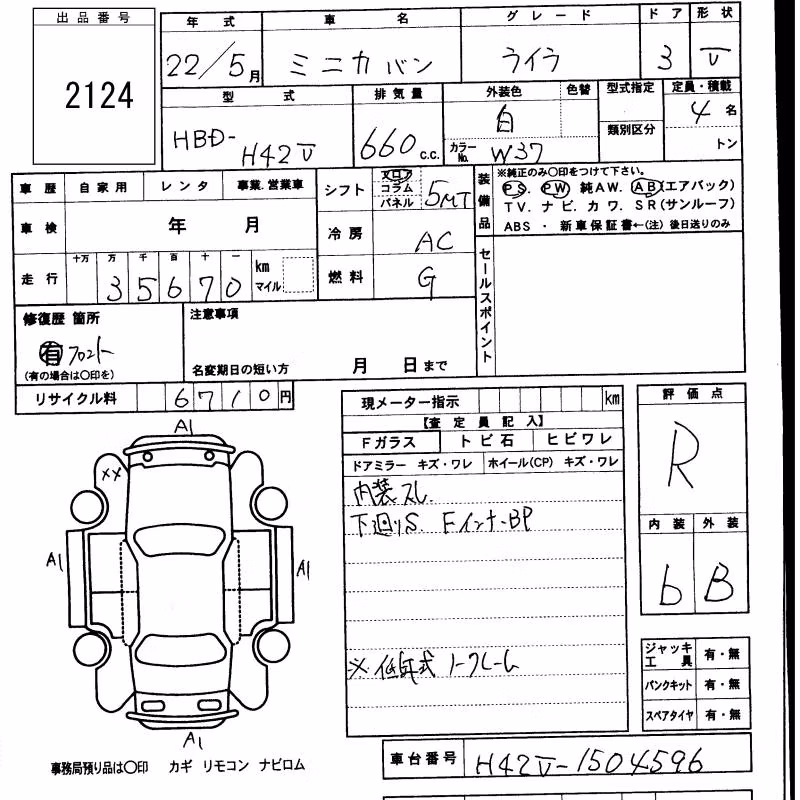 出品番号
2124
年式 車名 グレード ドア 形状
22/5月 ミニカバン ライラ 3 V
型式 排気量 外装色 色替 型式指定 定員・積載
HBD-H42V 660c.c. 白 類別区分 4名
カラーNo. W37 トン
車歴 自家用 レンタ 事業.営業車
シフト フロア コラム パネル 5MT
装備品 ※純正のみ○印をつけて下さい。
PS. PW 純AW. AB(エアバック)
TV. ナビ. カワ. SR(サンルーフ)
ABS ・ 新車保証書←(注) 後日送りのみ
車検 年 月
冷房 AC
セールスポイント
走行 十万 万 千 百 十 一 km マイル
35670
燃料 G
修復歴 箇所
有 フロント
(有の場合は○印を)
注意事項
名変期日の短い方 月 日まで
リサイクル料 6710円
現メーター指示 km
【査定員記入】
Fガラス トビ石 ヒビワレ
ドアミラー キズ・ワレ ホイール(CP) キズ・ワレ
内装スレ
下廻りS. FインナーBP
※低年式 ノークレーム
評価点
R
内装 外装
b B
A1
XX
A1 A1
A1
ジャッキ工具 有・無
パンクキット 有・無
スペアタイヤ 有・無
車台番号 H42V-1504596
事務局預り品は○印 カギ リモコン ナビロム